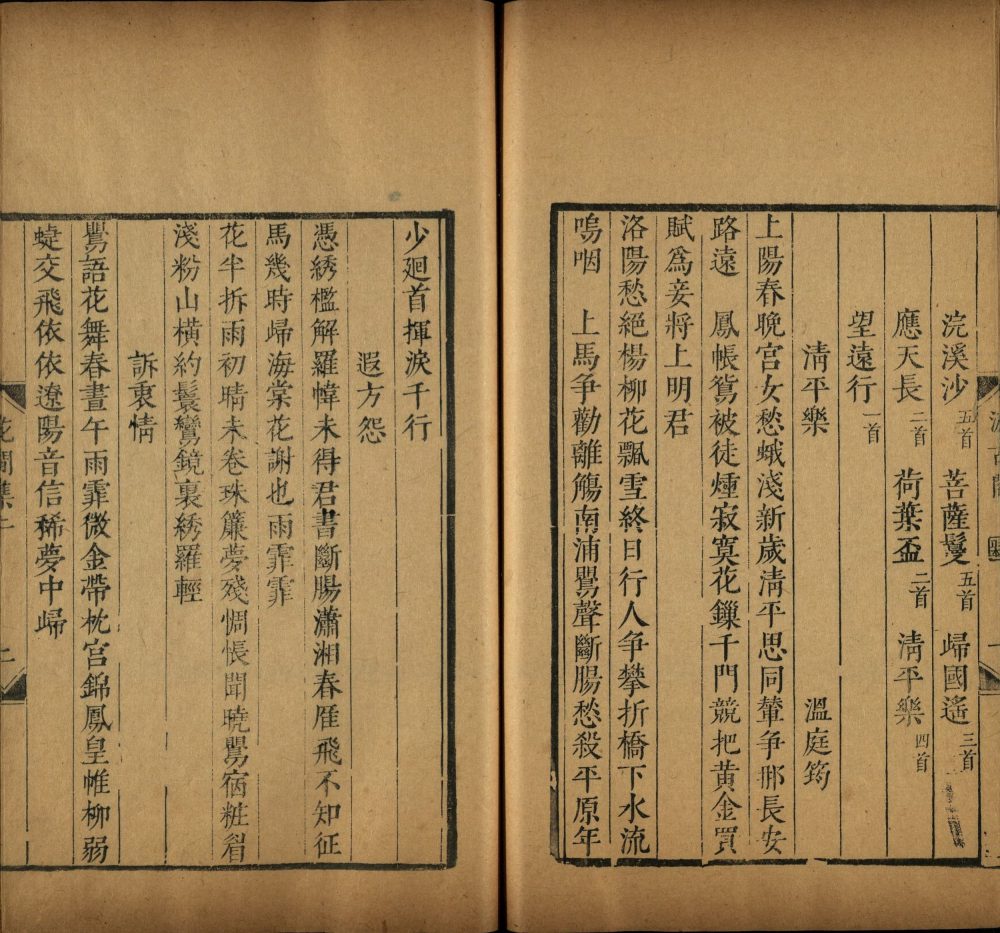 浣溪沙 五首 菩薩鬘 五首 歸國遙 三首
應天長 二首 荷葉盃 二首 清平樂 四首
望遠行 一首
清平樂 溫庭筠
上陽春晚宮女愁蛾淺新歲清平思同輦争那長安
路遠 鳳帳鴛被徒燻寂寞花鏁千門競把黃金買
賦爲妾將上明君
洛陽愁絕楊柳花飄雪終日行人争攀折橋下水流
嗚咽 上馬争勸離觴南浦鸎聲斷腸愁殺平原年
少廻首揮淚千行
遐方怨
憑綉檻解羅幃未得君書斷腸瀟湘春雁飛不知征
馬幾時歸海棠花謝也雨霏霏
花半拆雨初晴未卷珠簾夢殘惆悵聞曉鸎宿粧眉
淺粉山橫約鬟鸞鏡裏綉羅輕
訴衷情
鸎語花舞春晝午雨霏微金帶枕宮錦鳳皇帷柳弱
蜨交飛依依遼陽音信稀夢中歸
花間集